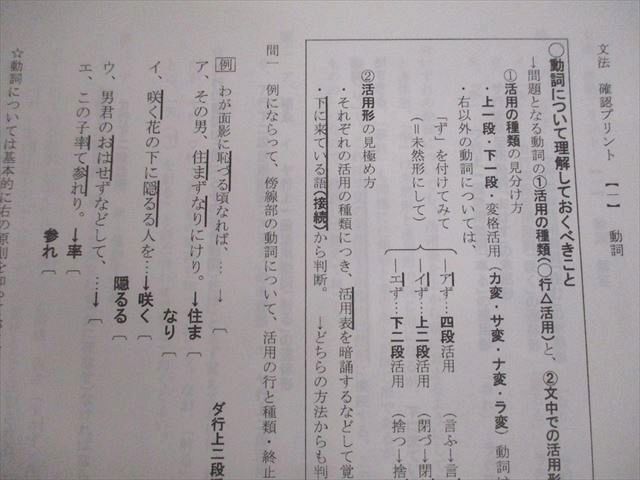 文法 確認プリント 【一】 動詞
○動詞について理解しておくべきこと
→問題となる動詞の①活用の種類(○行△活用)と、②文中での活用形
①活用の種類の見分け方
・上一段・下一段・変格活用(カ変・サ変・ナ変・ラ変)動詞は
・右以外の動詞については、
「ず」を付けてみて
(=未然形にして)
―アず…四段活用 (言ふ→言
―イず…上二段活用 (閉づ→閉
―エず…下二段活用 (捨つ→捨
②活用形の見極め方
・それぞれの活用の種類につき、活用表を暗誦するなどして覚
・下に来ている語(接続)から判断。 →どちらの方法からも判
問一 例にならって、傍線部の動詞について、活用の行と種類・終止
例 わが面影に恥づる頃なれば、… → 〔 ダ行上二段
ア、その男、住まずなりにけり。→住ま 〔
なり 〔
イ、咲く花の下に隠るる人を…→咲く 〔
隠るる 〔
ウ、男君のおはせずなどして、…→ 〔
エ、この子率て参れり。→率 〔
参れ 〔
☆動詞については基本的に右の原則を